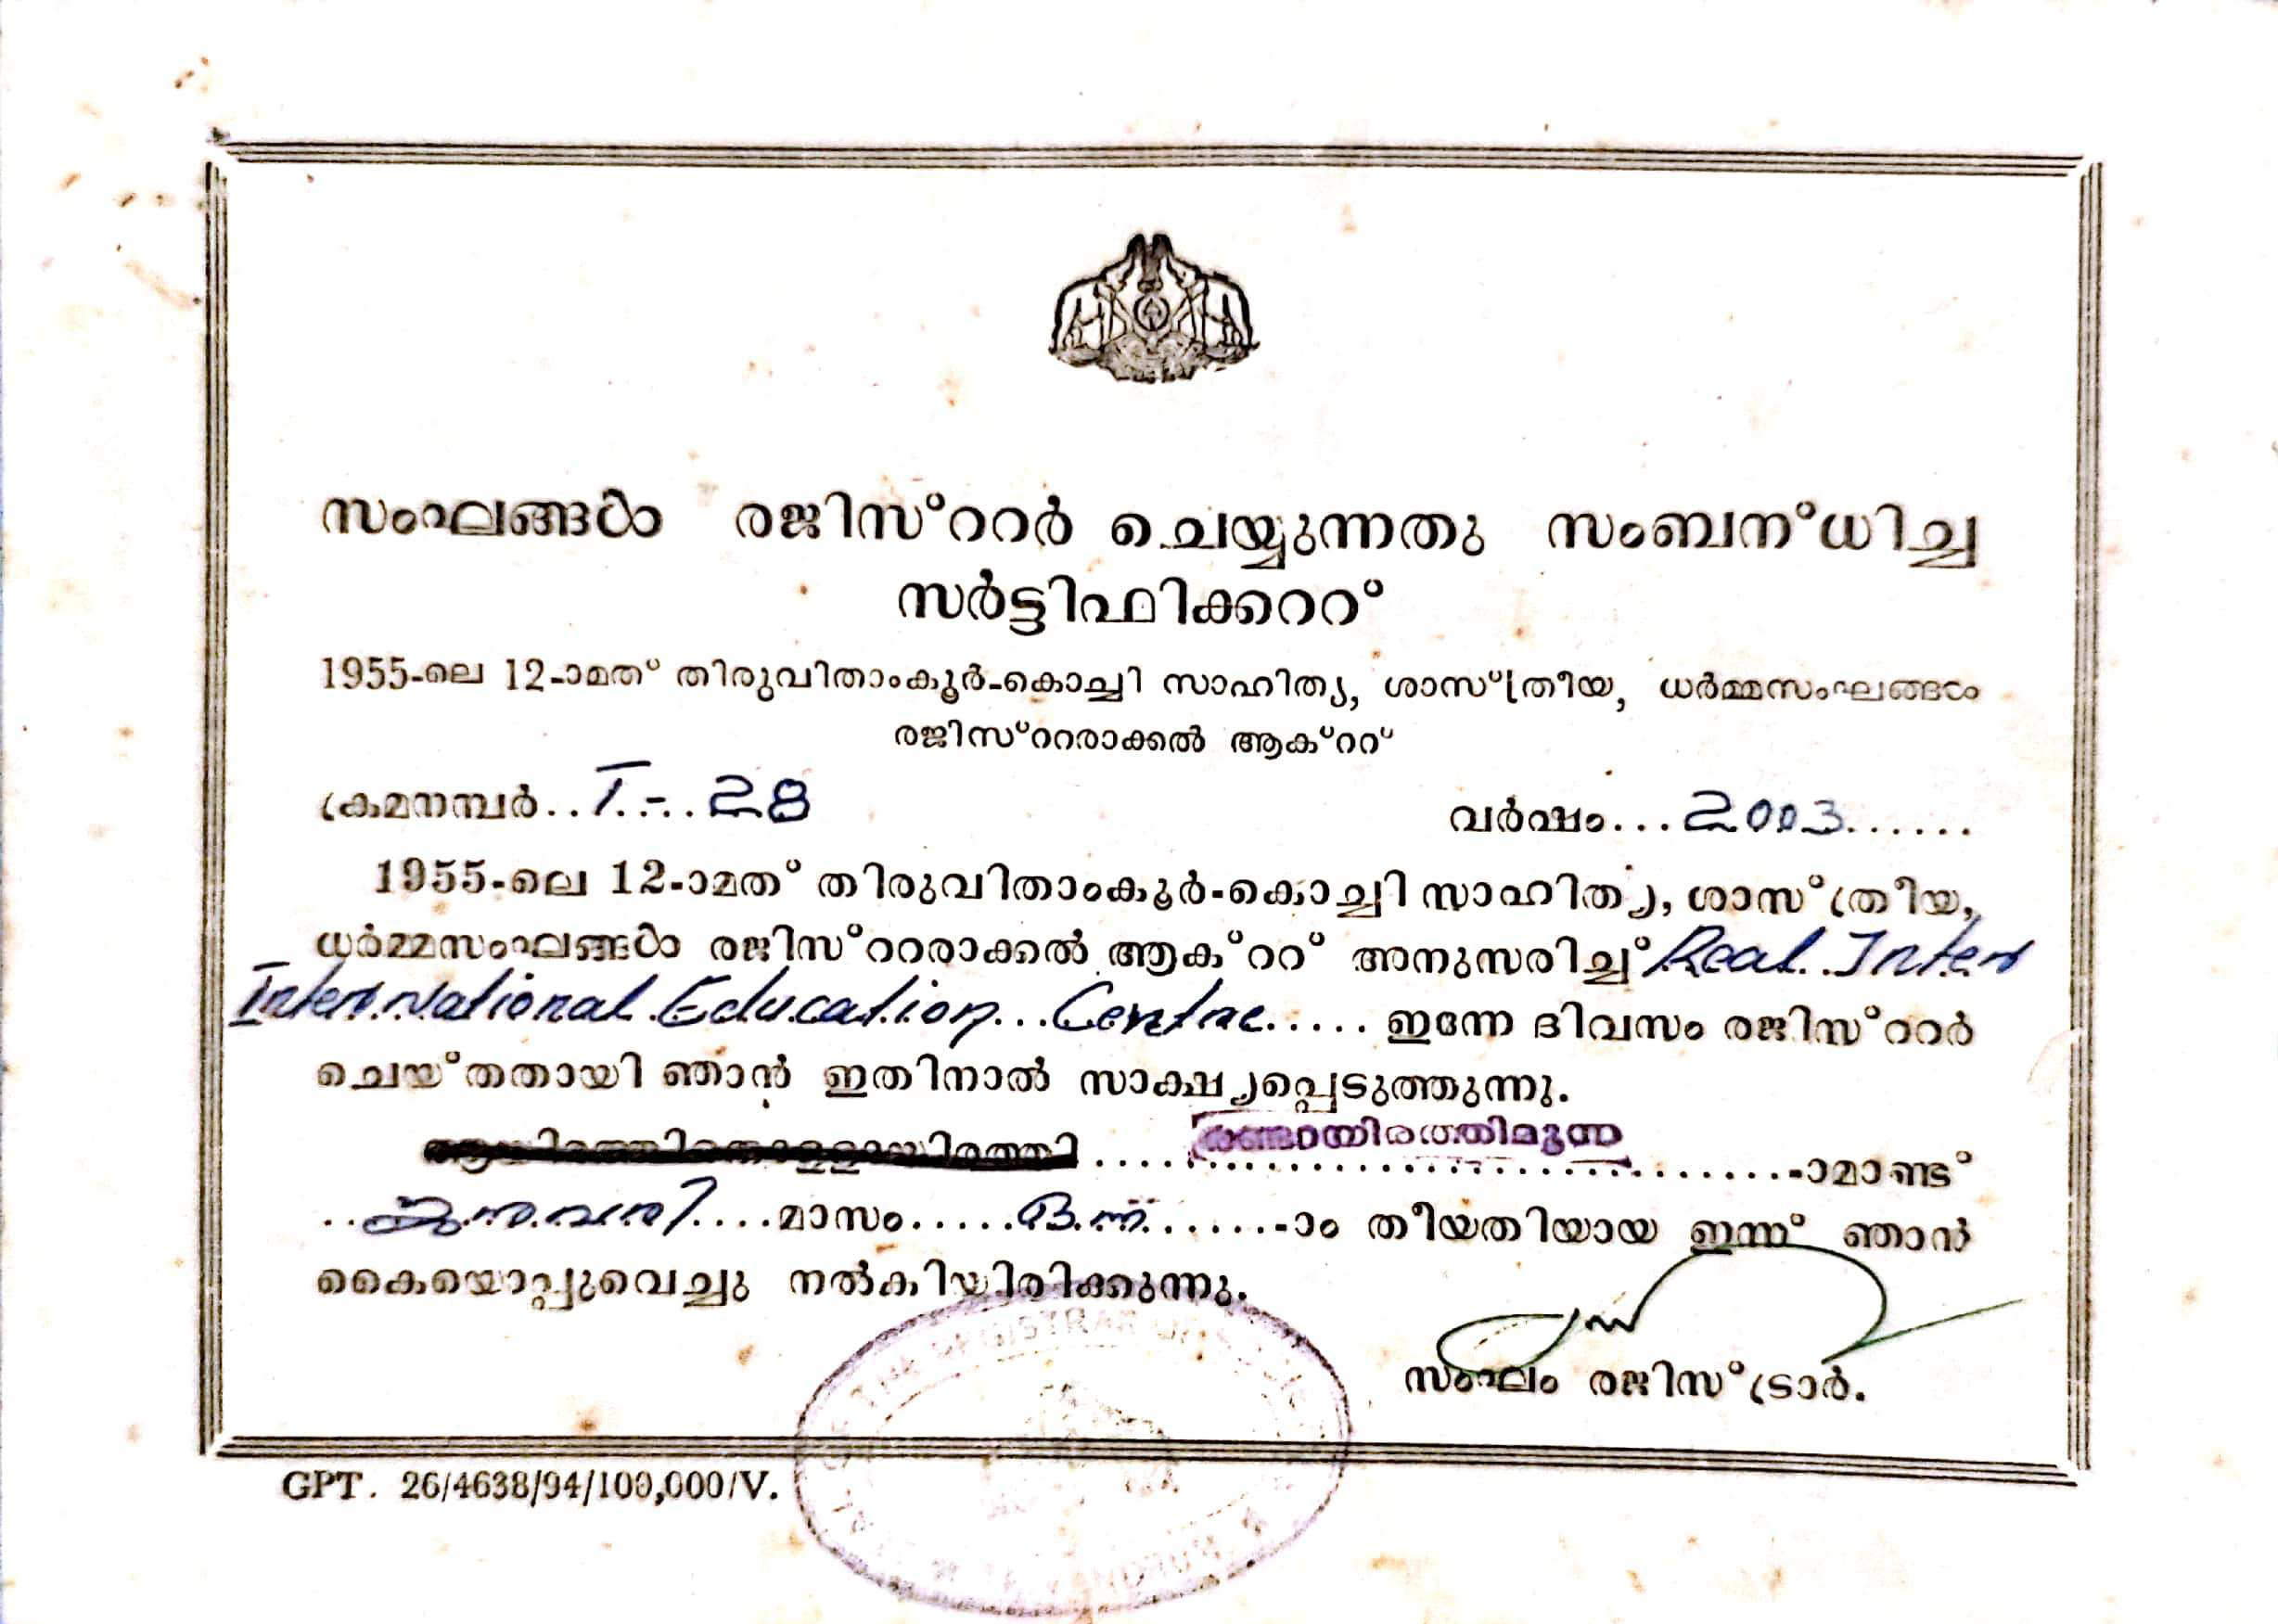 സംഘങ്ങൾ രജിസ്റ്റർ ചെയ്യുന്നതു സംബന്ധിച്ച
സർട്ടിഫിക്കററ്
1955-ലെ 12-ാമത് തിരുവിതാംകൂർ-കൊച്ചി സാഹിത്യ, ശാസ്ത്രീയ, ധർമ്മസംഘങ്ങൾ
രജിസ്റ്ററാക്കൽ ആക്ററ്
ക്രമനമ്പർ..T.-..28 വർഷം...2003......
1955-ലെ 12-ാമത് തിരുവിതാംകൂർ-കൊച്ചി സാഹിത്യ, ശാസ്ത്രീയ,
ധർമ്മസംഘങ്ങൾ രജിസ്റ്ററാക്കൽ ആക്ററ് അനുസരിച്ച് Real Inter
International Education Centre..... ഇന്നേ ദിവസം രജിസ്റ്റർ
ചെയ്തതായി ഞാൻ ഇതിനാൽ സാക്ഷ്യപ്പെടുത്തുന്നു.
രണ്ടായിരത്തിമൂന്നു
ആയിരത്തിതൊള്ളായിരത്തി ..........-ാമാണ്ട്
..ജനുവരി....മാസം.....13.ന്.......-ാം തീയതിയായ ഇന്നു് ഞാൻ
കൈയൊപ്പുവെച്ചു നൽകിയിരിക്കുന്നു.
സംഘം രജിസ്ട്രാർ.
GPT. 26/4638/94/100,000/V.